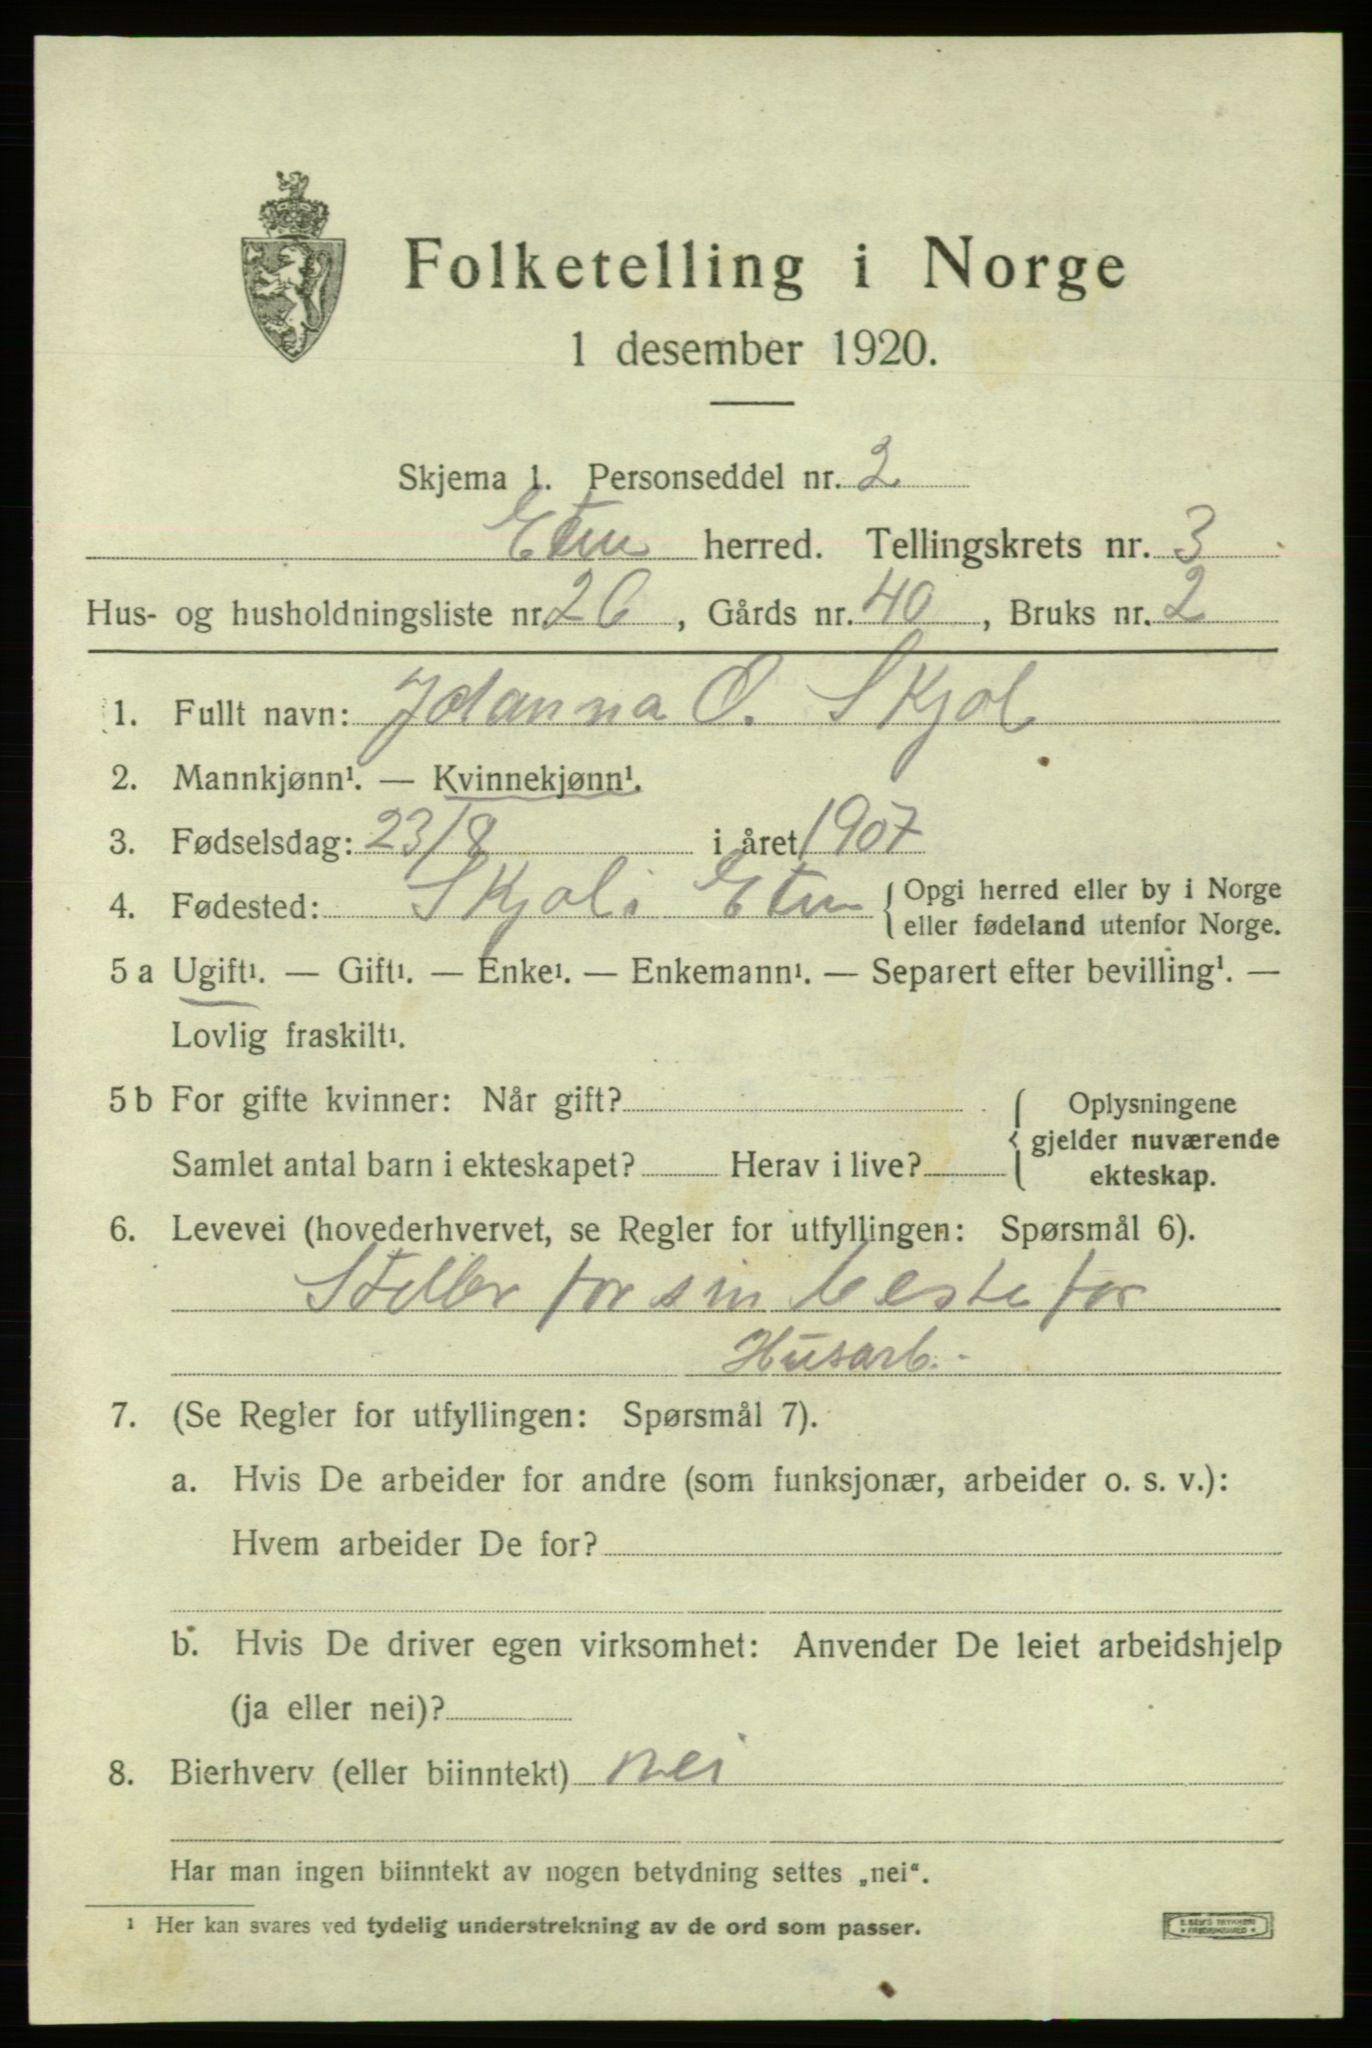 Folketelling i Norge
1 desember 1920.
Skjema 1. Personseddel nr. 2
Etne herred. Tellingskrets nr. 3
Hus- og husholdningsliste nr. 26, Gårds nr. 40, Bruks nr. 2
1. Fullt navn: Johanna O. Skjol
2. Mannkjønn¹. — Kvinnekjønn¹.
3. Fødselsdag: 23/8 i året 1907
4. Fødested: Skjol i Etne { Opgi herred eller by i Norge
eller fødeland utenfor Norge.
5 a Ugift¹. — Gift¹. — Enke¹. — Enkemann¹. — Separert efter bevilling¹. —
Lovlig fraskilt¹.
5 b For gifte kvinner: Når gift? { Oplysningene
gjelder nuværende
ekteskap.
Samlet antal barn i ekteskapet? Herav i live?
6. Levevei (hovederhvervet, se Regler for utfyllingen: Spørsmål 6).
Steller for sin bestefor
Husarb.
7. (Se Regler for utfyllingen: Spørsmål 7).
a. Hvis De arbeider for andre (som funksjonær, arbeider o. s. v.):
Hvem arbeider De for?
b. Hvis De driver egen virksomhet: Anvender De leiet arbeidshjelp
(ja eller nei)?
8. Bierhverv (eller biinntekt) nei
Har man ingen biinntekt av nogen betydning settes „nei“.
¹ Her kan svares ved tydelig understrekning av de ord som passer.